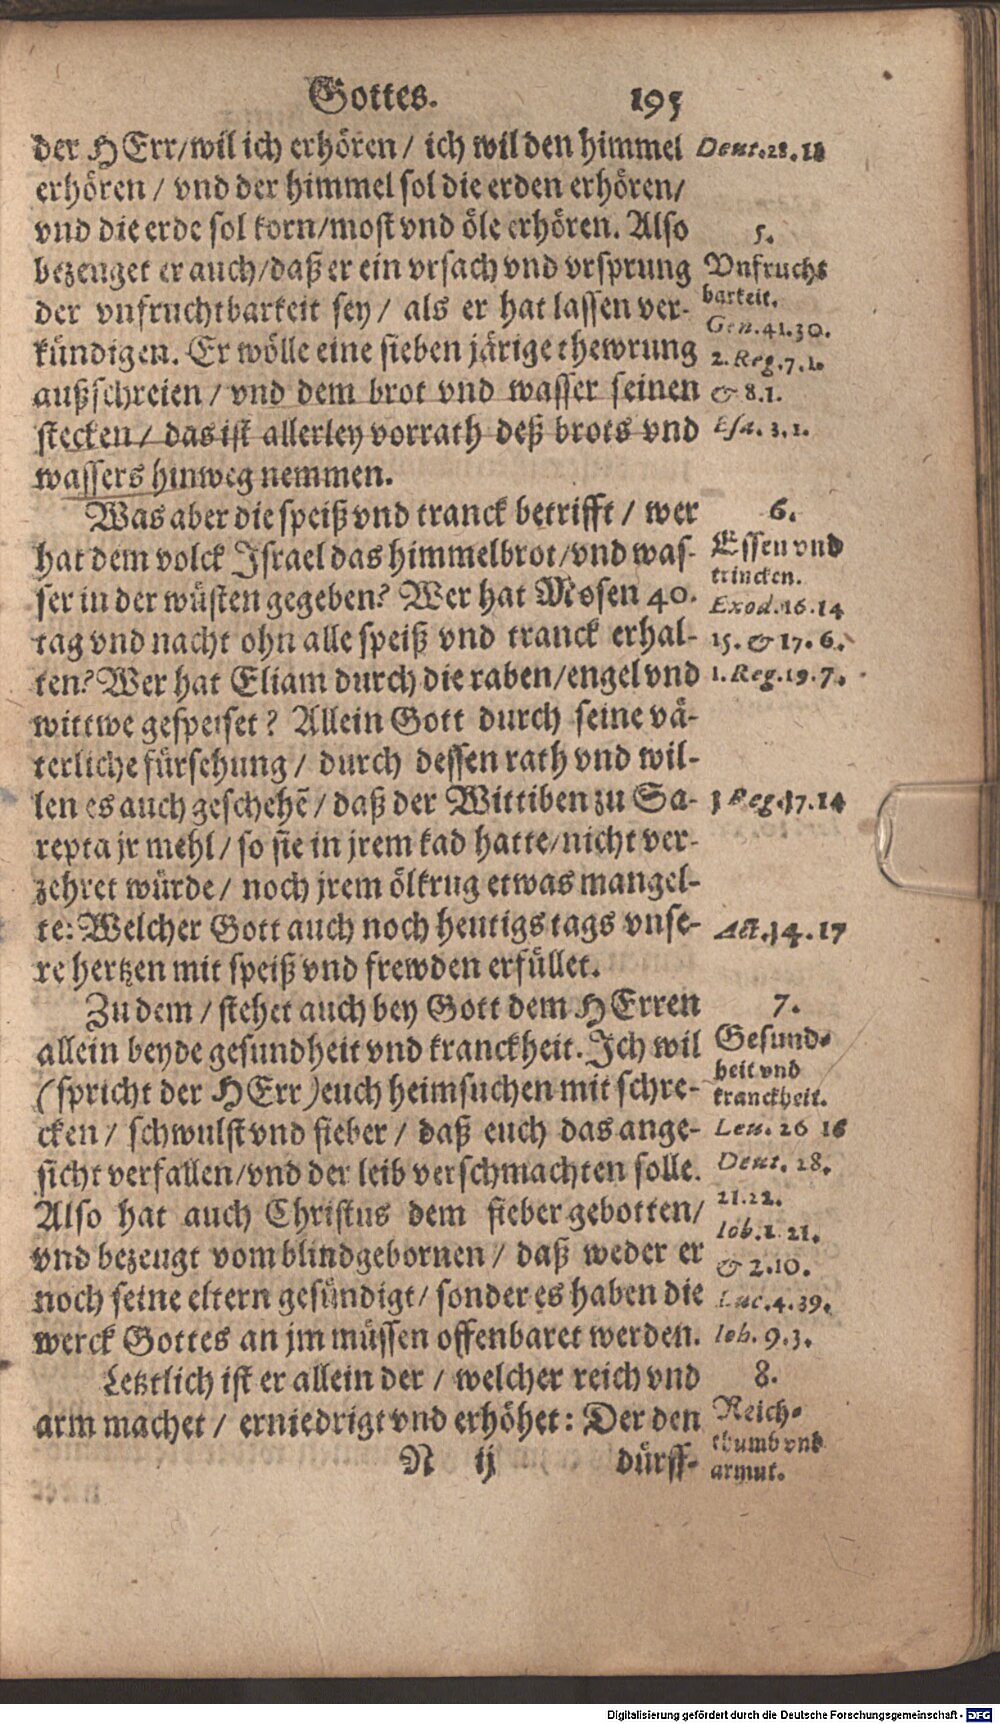 Gottes. 195
der HErr/wil ich erhören / ich wil den himmel
erhören / vnd der himmel sol die erden erhören/
vnd die erde sol korn/most vnd öle erhören. Also
bezeuget er auch/daß er ein vrsach vnd vrsprung
der vnfruchtbarkeit sey / als er hat lassen ver-
kündigen. Er wölle eine sieben järige thewrung
außschreien / vnd dem brot vnd wasser seinen
stecken / das ist allerley vorrath deß brots vnd
wassers hinweg nemmen.
Was aber die speiß vnd tranck betrifft / wer
hat dem volck Israel das himmelbrot/vnd was-
ser in der wüsten gegeben? Wer hat Mosen 40.
tag vnd nacht ohn alle speiß vnd tranck erhal-
ten? Wer hat Eliam durch die raben/engel vnd
wittwe gespeiset? Allein Gott durch seine vä-
terliche fürsehung / durch dessen rath vnd wil-
len es auch geschehẽ / daß der Wittiben zu Sa-
repta jr mehl / so sie in jrem kad hatte/nicht ver-
zehret würde / noch jrem ölkrug etwas mangel-
te: Welcher Gott auch noch heutigs tags vnse-
re hertzen mit speiß vnd frewden erfüllet.
Zu dem / stehet auch bey Gott dem HErren
allein beyde gesundheit vnd kranckheit. Ich wil
(spricht der HErr) euch heimsuchen mit schre-
cken / schwulst vnd fieber / daß euch das ange-
sicht verfallen/vnd der leib verschmachten solle.
Also hat auch Christus dem fieber gebotten/
vnd bezeugt vom blindgebornen / daß weder er
noch seine eltern gesündigt / sonder es haben die
werck Gottes an jm müssen offenbaret werden.
Letztlich ist er allein der / welcher reich vnd
arm machet / erniedrigt vnd erhöhet: Der den
N ij dürff-
5.
Vnfrucht
barkeit.
Gen. 41.30.
2. Reg. 7.1.
& 8.1.
Esa. 3.1.
6.
Essen vnd
trincken.
Exod. 16.14
15. & 17.6.
1. Reg. 19.7.
Reg. 17.14
Act. 14.17
7.
Gesund-
heit vnd
kranckheit.
Leu. 26 16
Deut. 28.
21.22.
Iob. 1. 21.
& 2.10.
Luc. 4.39.
Ioh. 9.3.
8.
Reich-
thumb vnd
armut.
Digitalisierung gefördert durch die Deutsche Forschungsgemeinschaft - DFG